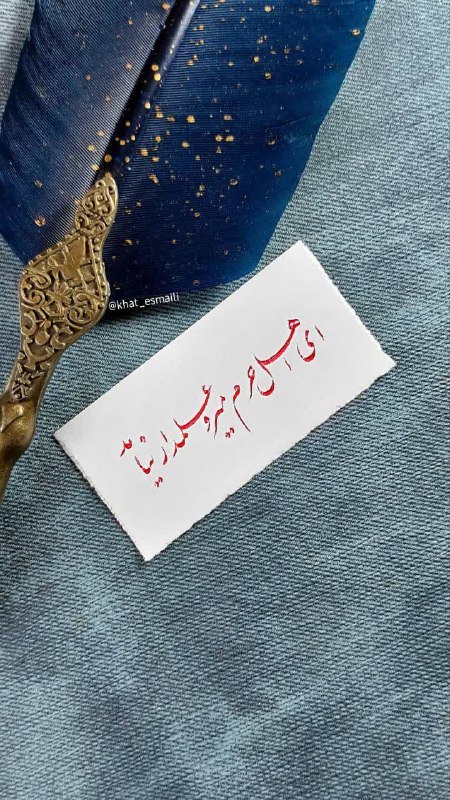 @khat_esmaili
ای اهل حرم میر و علمدار نیامد